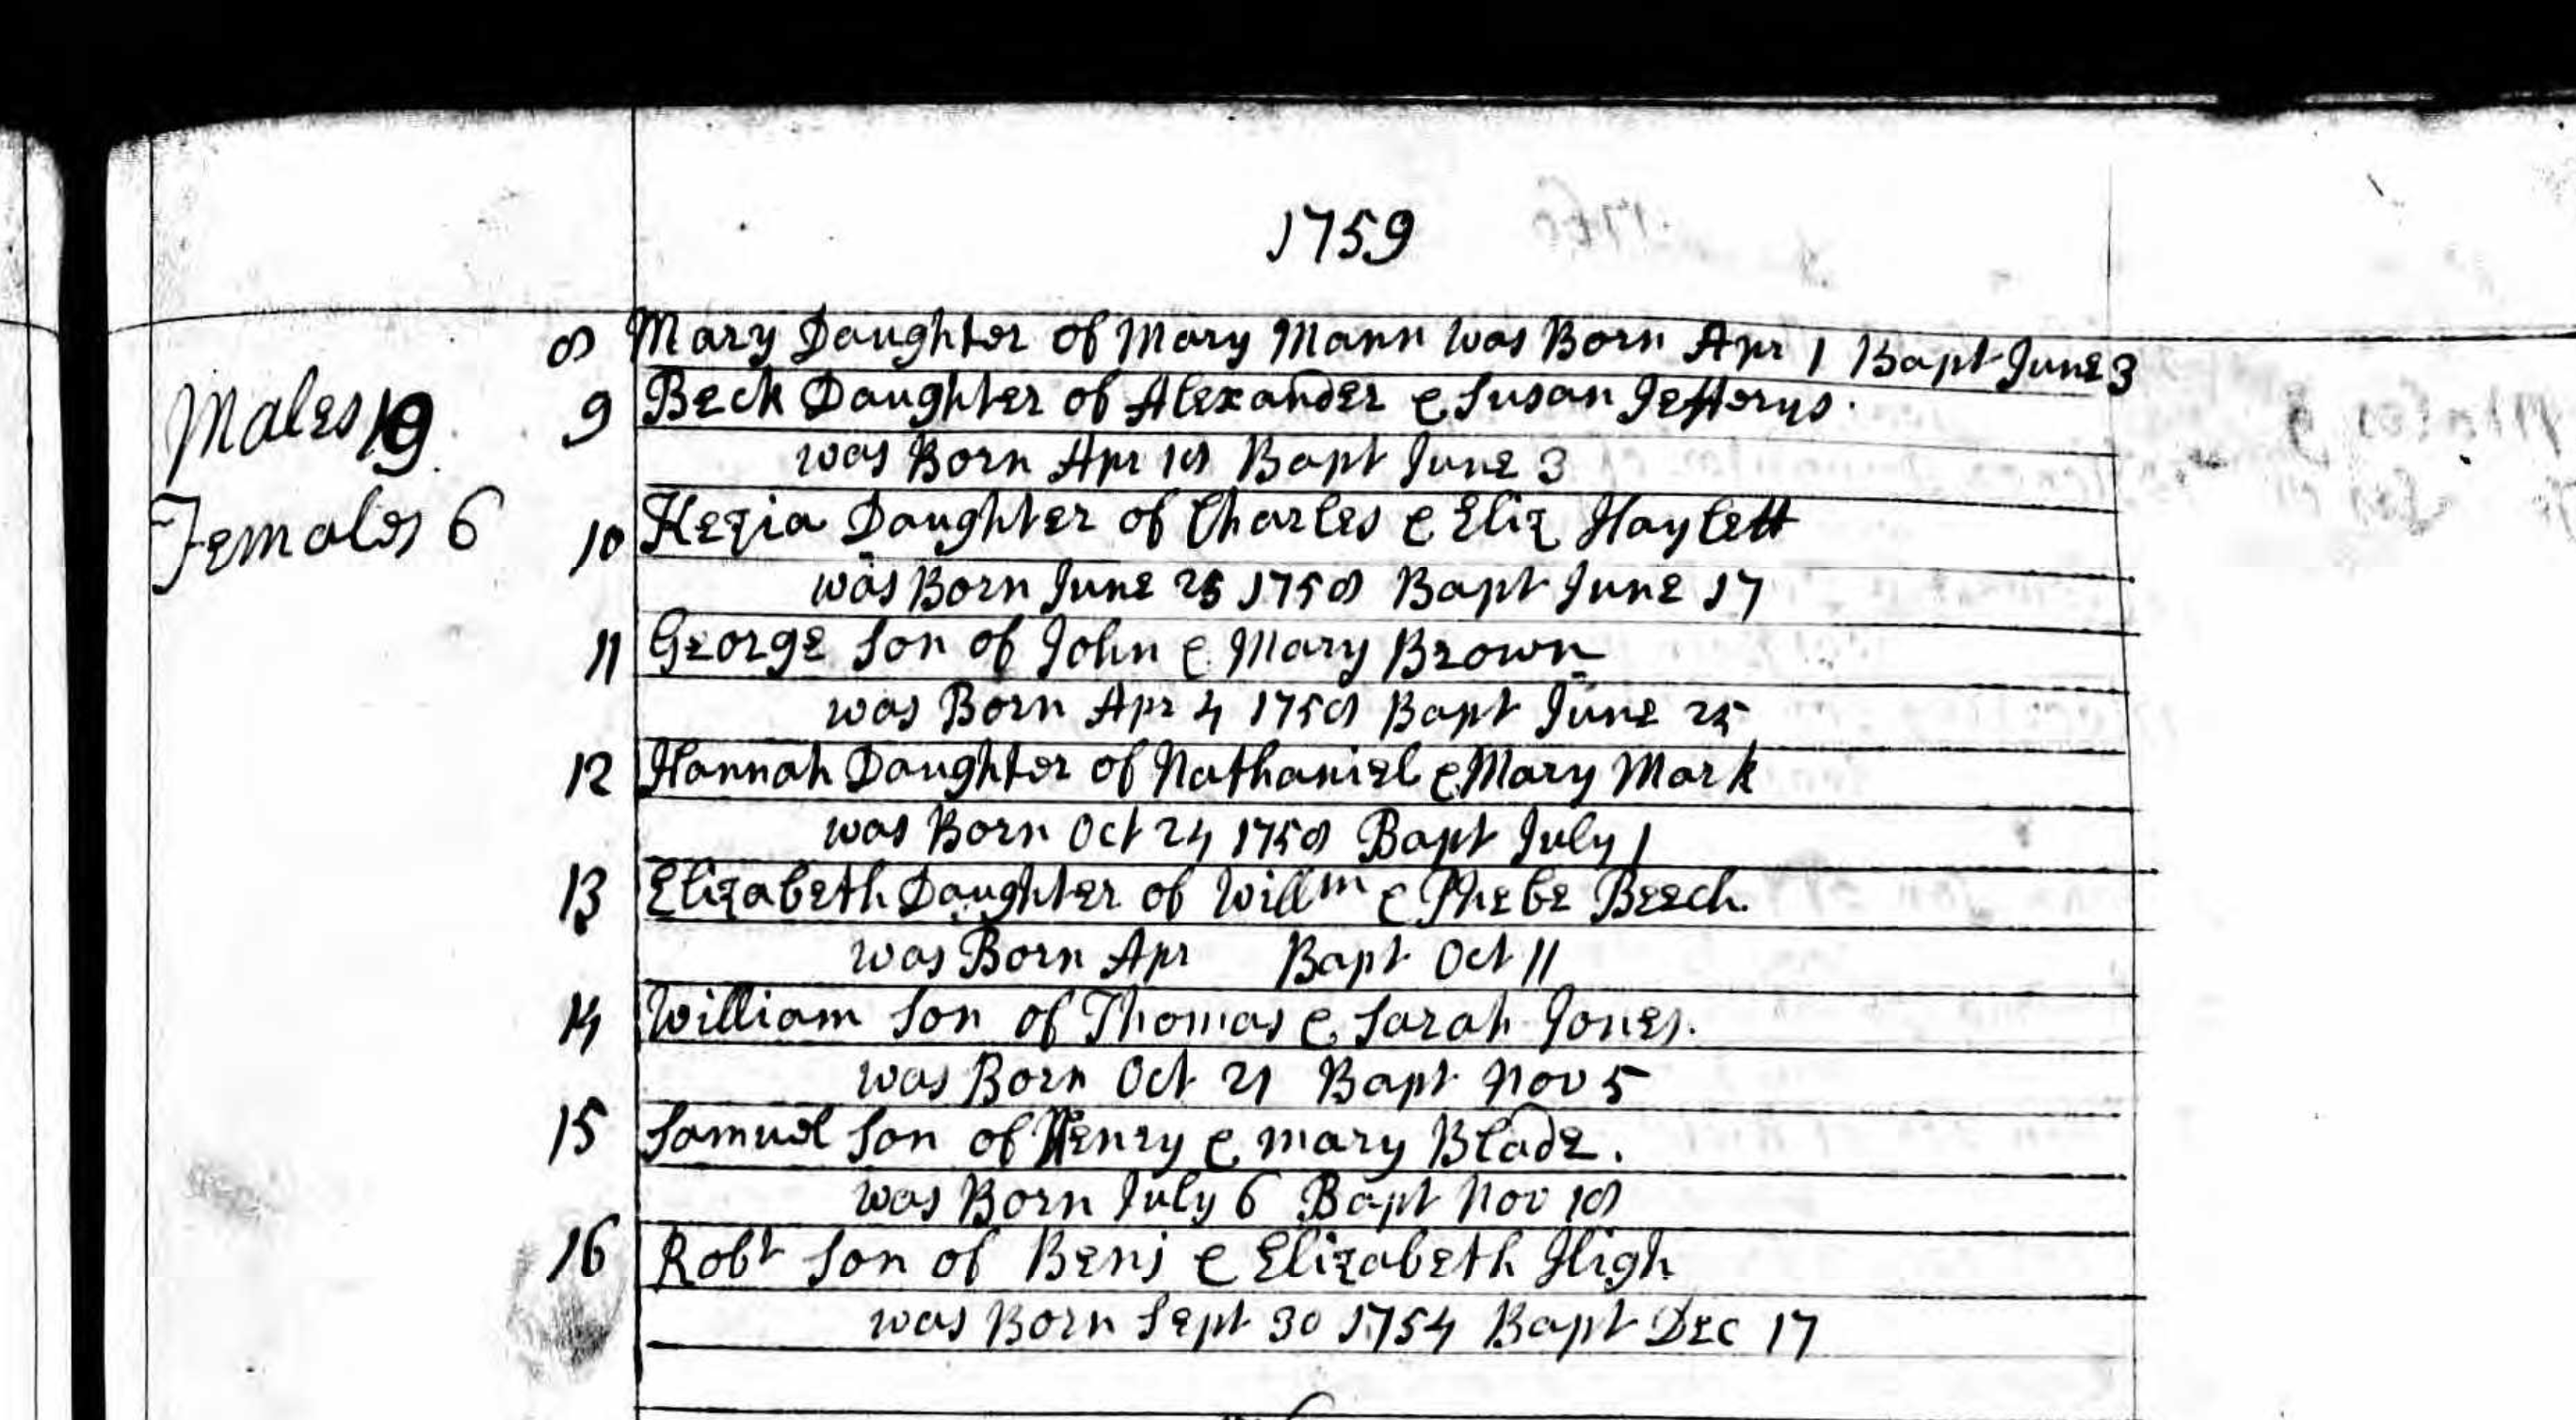 1759
8 Mary Daughter of Mary Mann was Born Apr 1 Bapt June 3
Males 9
9 Beck Daughter of Alexander & Susan Jefferys.
was Born Apr 18 Bapt June 3
Females 6
10 Kezia Daughter of Charles & Eliz Haylett
was Born June 25 1758 Bapt June 17
11 George Son of John & Mary Brown
was Born Apr 4 1758 Bapt June 25
12 Hannah Daughter of Nathaniel & Mary Mark
was Born Oct 24 1758 Bapt July 1
13 Elizabeth Daughter of Willm & Phebe Beech.
was Born Apr Bapt Oct 11
14 William Son of Thomas & Sarah Jones.
was Born Oct 21 Bapt Nov 5
15 Samuel Son of Henry & mary Blade.
was Born July 6 Bapt Nov 18
16 Robt Son of Benj & Elizabeth High
was Born Sept 30 1754 Bapt Dec 17